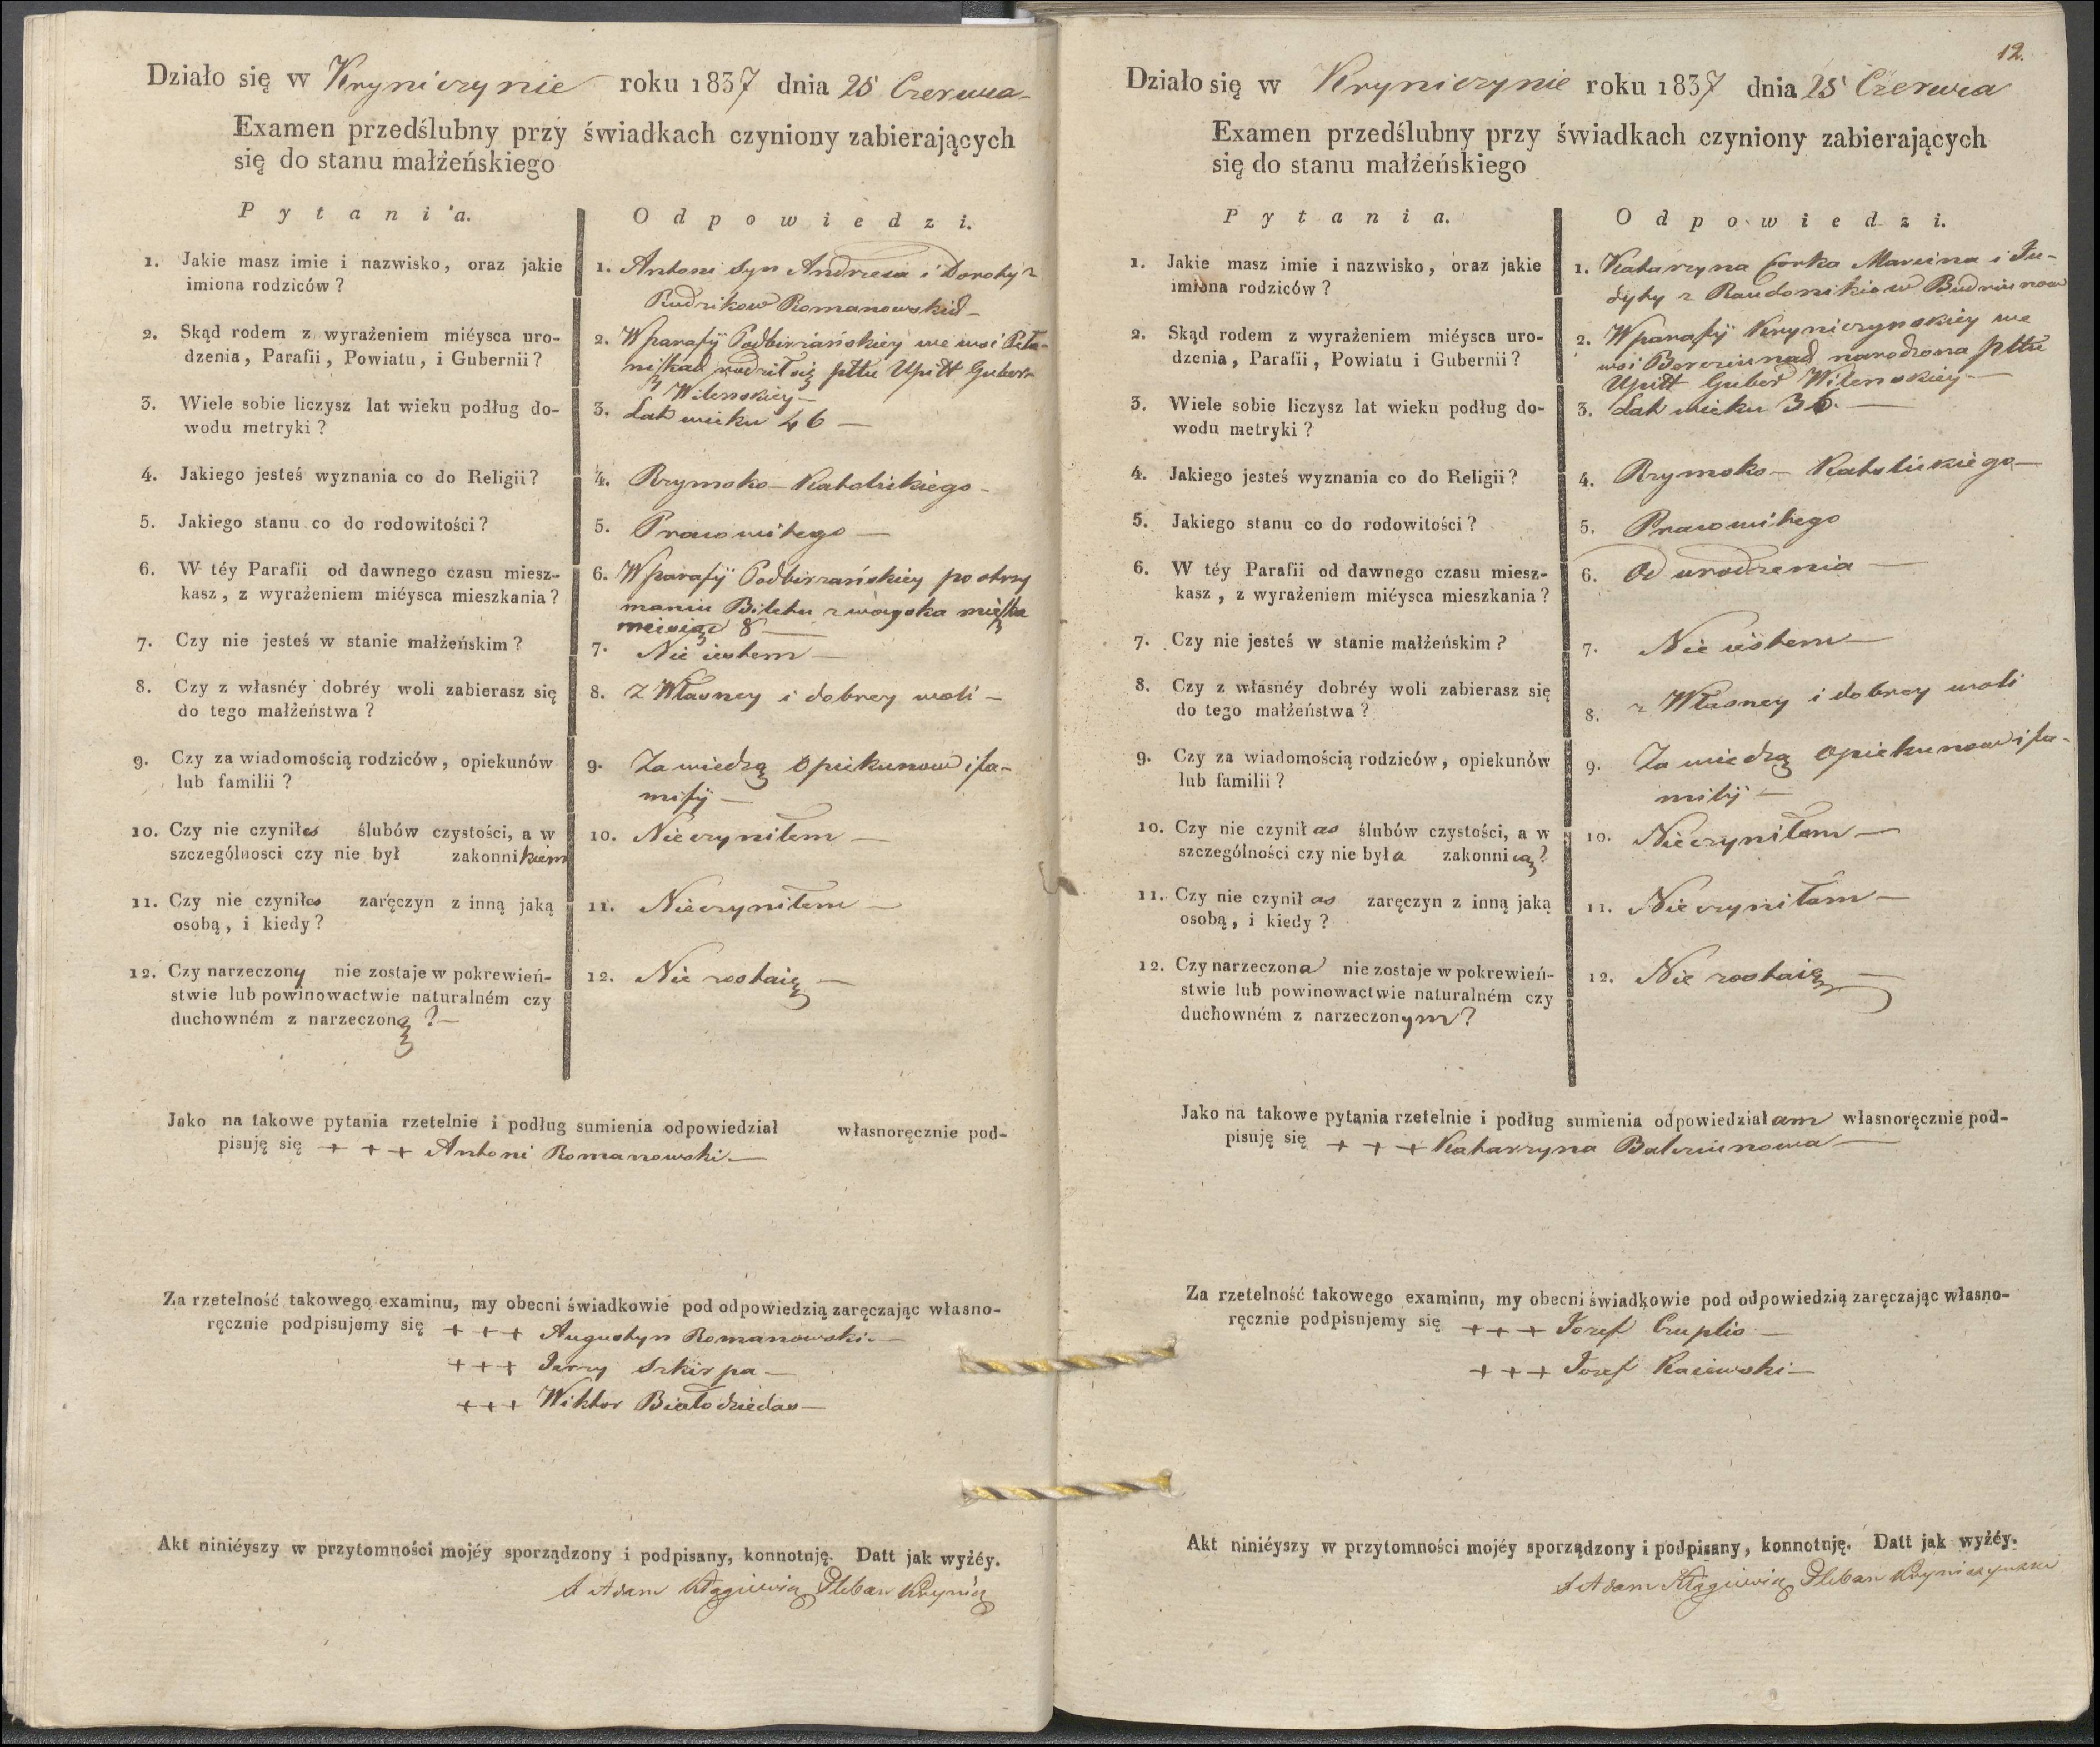 Działo się w Kryniczynie roku 1837 dnia 25 Czerwca
Examen przedślubny przy świadkach czyniony zabierających
się do stanu małżeńskiego
Pytania.
Odpowiedzi.
1. Jakie masz imie i nazwisko, oraz jakie
imiona rodziców?
1. Antoni syn Andrzeia i Doroty z
Rudzikow Romanowskich
2. Skąd rodem z wyrażeniem miéysca uro-
dzenia, Parafii, Powiatu, i Gubernii?
2. W parafij Podbirżańskiey we wsi
rodził się pttu Upitt Gubern
Wilenskiey
3. Wiele sobie liczysz lat wieku podług do-
wodu metryki?
3. Lat wieku 46
4. Jakiego jesteś wyznania co do Religii?
4. Rzymsko-Katolickiego
5. Jakiego stanu co do rodowitości?
5. Prawowitego
6. W téy Parafii od dawnego czasu miesz-
kasz, z wyrażeniem miéysca mieszkania?
6. W parafij Podbirżańskiey po otrzy
maniu Biletu z woyska mieszka
miesiąc 8
7. Czy nie jesteś w stanie małżeńskim?
7. Nie iestem
8. Czy z własnéy dobréy woli zabierasz się
do tego małżeństwa?
8. Z Własney i dobrey woli
9. Czy za wiadomością rodziców, opiekunów
lub familii?
9. Za wiedzą opiekunow i fa-
milij
10. Czy nie czyniłes ślubów czystości, a w
szczególnosci czy nie był zakonnikiem
10. Nie czyniłem
11. Czy nie czyniłes zaręczyn z inną jaką
osobą, i kiedy?
11. Nie czyniłem
12. Czy narzeczony nie zostaje w pokrewień-
stwie lub powinowactwie naturalném czy
duchowném z narzeczoną?
12. Nie zostaię
Jako na takowe pytania rzetelnie i podług sumienia odpowiedział własnoręcznie pod-
pisuję się + + + Antoni Romanowski
Za rzetelność takowego examinu, my obecni świadkowie pod odpowiedzią zaręczając własno-
ręcznie podpisujemy się + + + Augustyn Romanowski
+ + + Jerzy Szkirpa
+ + + Wiktor Białodziedas
Akt niniéyszy w przytomności mojéy sporządzony i podpisany, konnotuję. Datt jak wyżéy.
Adam Pleban
12.
Działo się w Kryniczynie roku 1837 dnia 25 Czerwca
Examen przedślubny przy świadkach czyniony zabierających
się do stanu małżeńskiego
Pytania.
Odpowiedzi.
1. Jakie masz imie i nazwisko, oraz jakie
imiona rodziców?
1. Katarzyna Corka Marcina i Ju-
dyty z
2. Skąd rodem z wyrażeniem miéysca uro-
dzenia, Parafii, Powiatu i Gubernii?
2. W parafij Kryniczynskiey we
wsi narodzona pttu
Upitt Guber Wilenskiey
3. Wiele sobie liczysz lat wieku podług do-
wodu metryki?
3. Lat wieku 36.
4. Jakiego jesteś wyznania co do Religii?
4. Rzymsko-Katolickiego
5. Jakiego stanu co do rodowitości?
5. Prawowitego
6. W téy Parafii od dawnego czasu miesz-
kasz, z wyrażeniem miéysca mieszkania?
6. Od urodzenia
7. Czy nie jesteś w stanie małżeńskim?
7. Nie iestem
8. Czy z własnéy dobréy woli zabierasz się
do tego małżeństwa?
8. z Własney i dobrey woli
9. Czy za wiadomością rodziców, opiekunów
lub familii?
9. Za wiedzą opiekunow i fa-
milij
10. Czy nie czynił as ślubów czystości, a w
szczególności czy nie była zakonnicą?
10. Nie czyniłam
11. Czy nie czynił as zaręczyn z inną jaką
osobą, i kiedy?
11. Nie czyniłam
12. Czy narzeczona nie zostaje w pokrewień-
stwie lub powinowactwie naturalném czy
duchowném z narzeczonym?
12. Nie zostaię
Jako na takowe pytania rzetelnie i podług sumienia odpowiedziałam własnoręcznie pod-
pisuję się + + + Katarzyna
Za rzetelność takowego examinu, my obecni świadkowie pod odpowiedzią zaręczając własno-
ręcznie podpisujemy się + + + Jozef Czuplis
+ + + Jozef Kaiewski
Akt niniéyszy w przytomności mojéy sporządzony i podpisany, konnotuję. Datt jak wyżéy.
Adam Pleban Kryniczynski